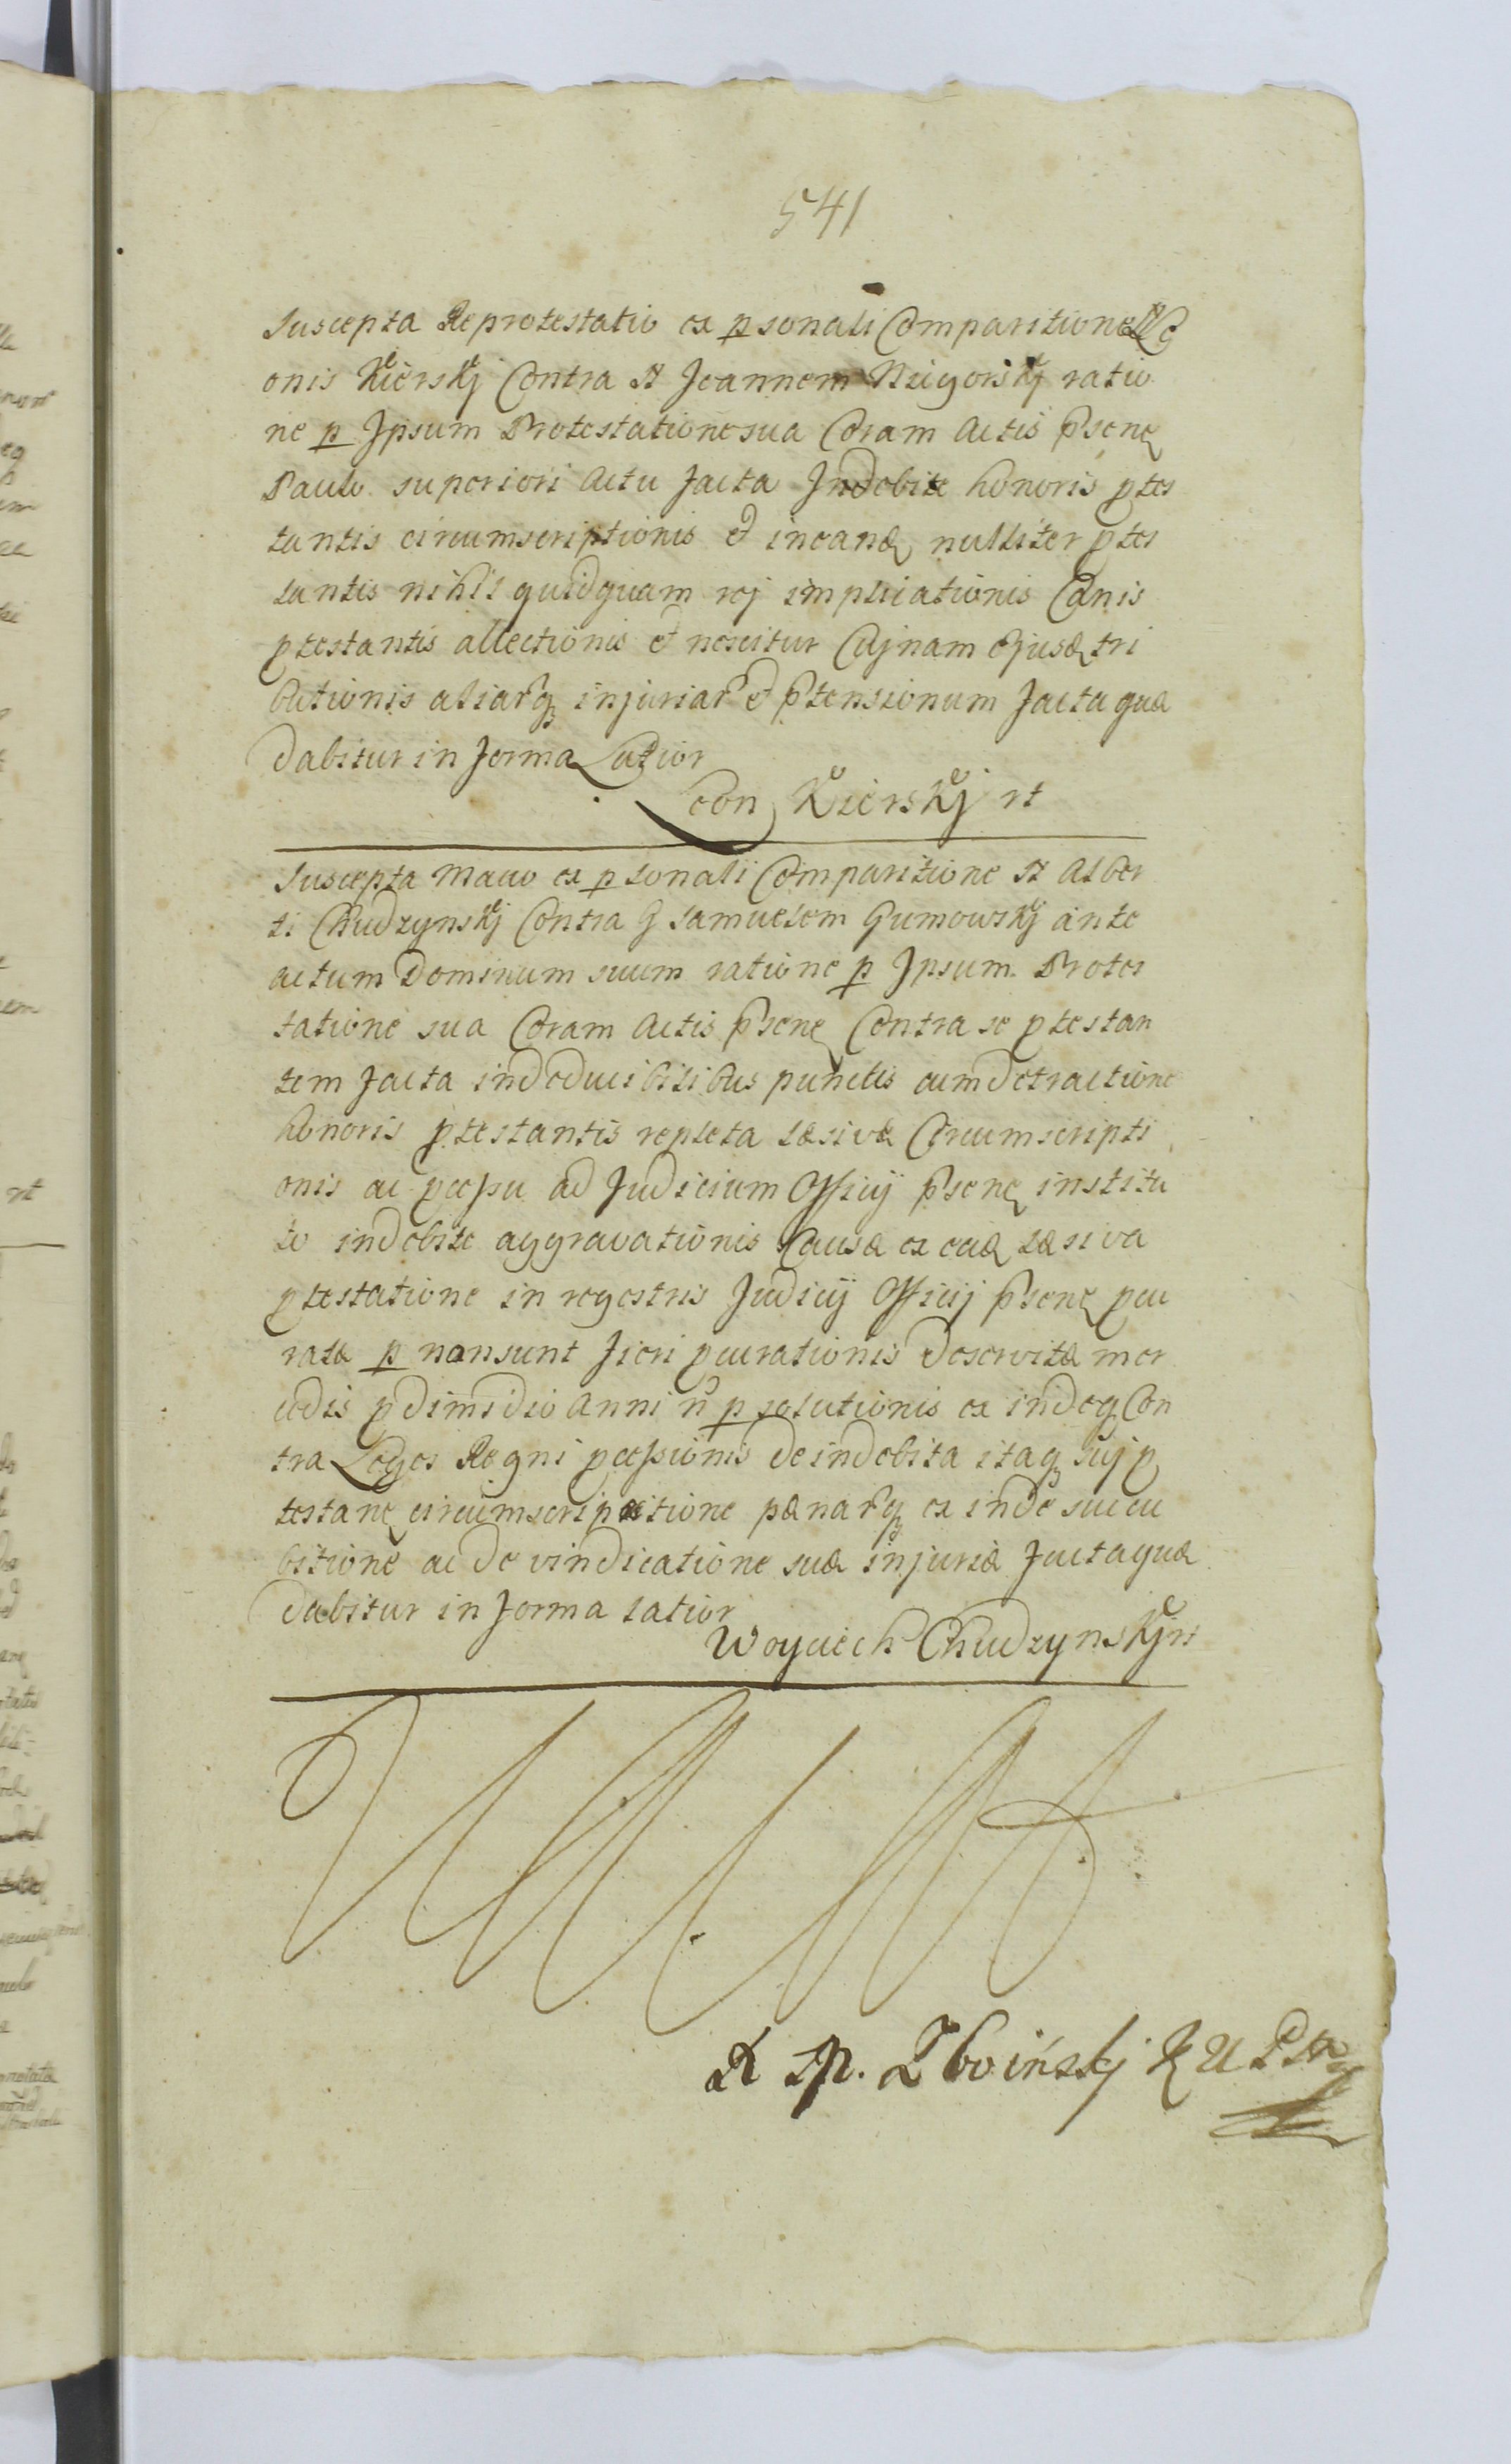 541
Suscepta Reprotestatio ex psonali Comparitione N Le
onis Kierskj Contra N Joannem Nieigorskj ratio
ne p Ipsum Protestatione sua Coram Actis pbsene
Paulo superiori Actu facta Indebite honoris ptes
tantis circumscriptionis et incanæ nulliter ptes
tantis nihil quidquam rej implicationis Canis
ptestantis allectionis et nescitur Cujnam Ejusdæ tri
butionis aliarq injuriar et ptensionum facta quæ
dabitur in forma Latior
Leon Kierskj rt
Suscepta Mano ex psonali Comparitione N Alber
ti Chudzynskj Contra G Samuelem Gumowskj ante
actum Dominum suum ratione p Ipsum Protes
tatione sua Coram Actis psene Contra se ptestan
tem facta indeducibilibus punctis cum detractione
honoris ptestantis repleta læsivæ Circumscripti
onis ac pcessu ad Judicium Officij psene institu
to indebite aggravationis Causæ ex eadæ læsiva
ptestatione in regestris Judicij Officij psene pcu
ratæ p nonsunt fieri pcurationis deservitæ mer
cedis p dimidio Anni n psolutionis ex indeq Con
tra Leges Regni pcessionis de indebita itaq suj p
testane circumscripitione pænarq ex inde succu
bitione ac de vindicatione suæ injuriæ facta quæ
dabitur in forma latior
Woyciech Chudzynskj rt
Zboinskj